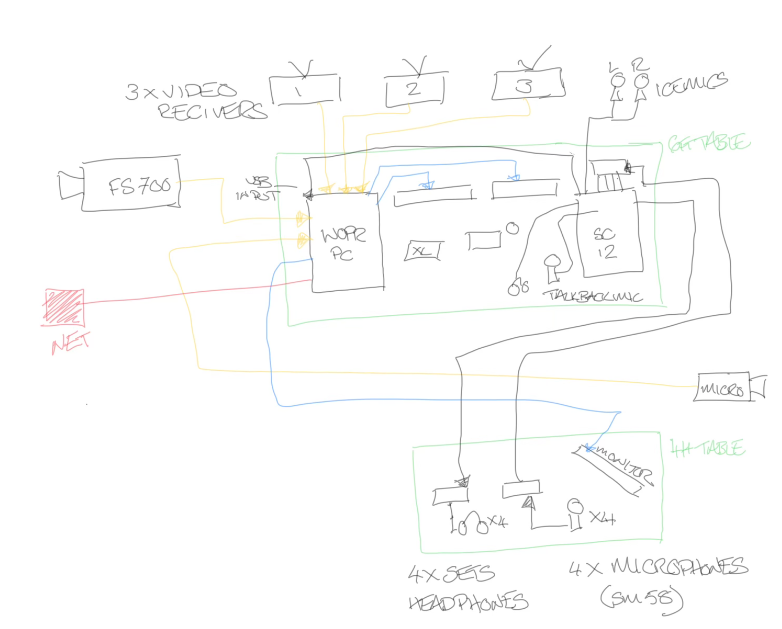 3 x VIDEO
RECIVERS
1
2
3
L R
ICEMICS
6FT TABLE
FS700
USB
IN PST
WOPR
PC
XL
SC
12
TALKBACK MIC
NET
MICRO
4FT TABLE
MONITOR
X4
X4
4 X SETS
HEADPHONES
4 X MICROPHONES
(SM58)